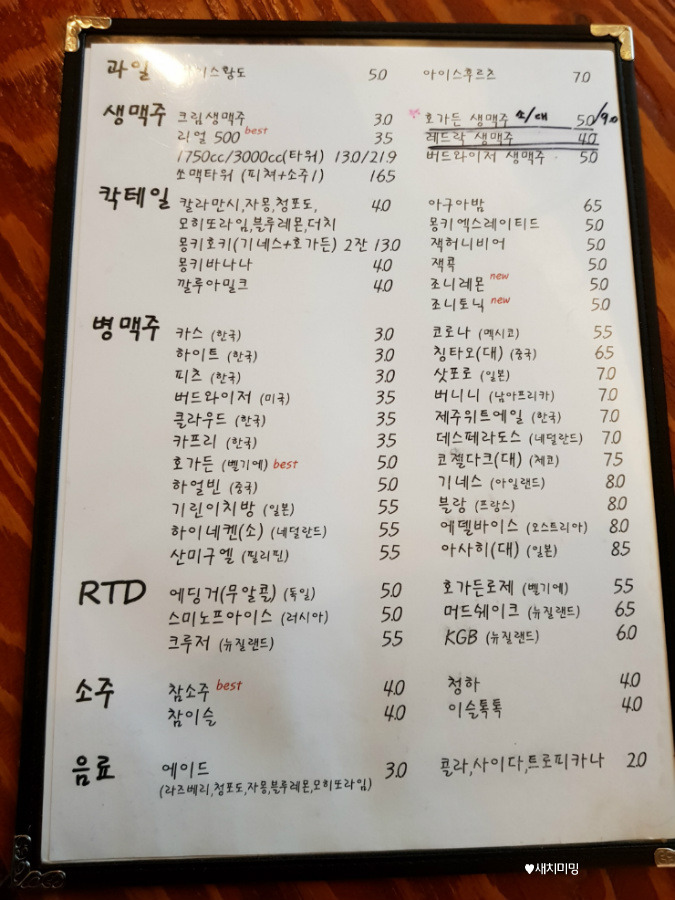 과일 아이스황도 5.0 아이스후르츠 7.0
생맥주 크림생맥주 3.0 호가든 생맥주 소/대 5.0/9.0
리얼 500 best 3.5 레드락 생맥주 4.0
1750cc/3000cc(타워) 13.0/21.9 버드와이저 생맥주 5.0
쏘맥타워 (피쳐+소주1) 16.5
칵테일 칼라만시,자몽,청포도, 4.0 아구아밤 6.5
모히또라임,블루레몬,더치 몽키엑스레이티드 5.0
몽키호키(기네스+호가든) 2잔 13.0 잭허니비어 5.0
몽키바나나 4.0 잭콕 5.0
깔루아밀크 4.0 조니레몬 new 5.0
조니토닉 new 5.0
병맥주 카스 (한국) 3.0 코로나 (멕시코) 5.5
하이트 (한국) 3.0 칭타오(대) (중국) 6.5
피츠 (한국) 3.0 삿포로 (일본) 7.0
버드와이저 (미국) 3.5 버니니 (남아프리카) 7.0
클라우드 (한국) 3.5 제주위트에일 (한국) 7.0
카프리 (한국) 3.5 데스페라도스 (네덜란드) 7.0
호가든 (벨기에) best 5.0 코젤다크(대) (체코) 7.5
하얼빈 (중국) 5.0 기네스 (아일랜드) 8.0
기린이치방 (일본) 5.5 블랑 (프랑스) 8.0
하이네켄(소) (네덜란드) 5.5 에델바이스 (오스트리아) 8.0
산미구엘 (필리핀) 5.5 아사히(대) (일본) 8.5
RTD 에딩거(무알콜) (독일) 5.0 호가든로제 (벨기에) 5.5
스미노프아이스 (러시아) 5.0 머드쉐이크 (뉴질랜드) 6.5
크루저 (뉴질랜드) 5.5 KGB (뉴질랜드) 6.0
소주 참소주 best 4.0 청하 4.0
참이슬 4.0 이슬톡톡 4.0
음료 에이드 3.0 콜라,사이다,트로피카나 2.0
(라즈베리,청포도,자몽,블루레몬,모히또라임)
♥새치미밍